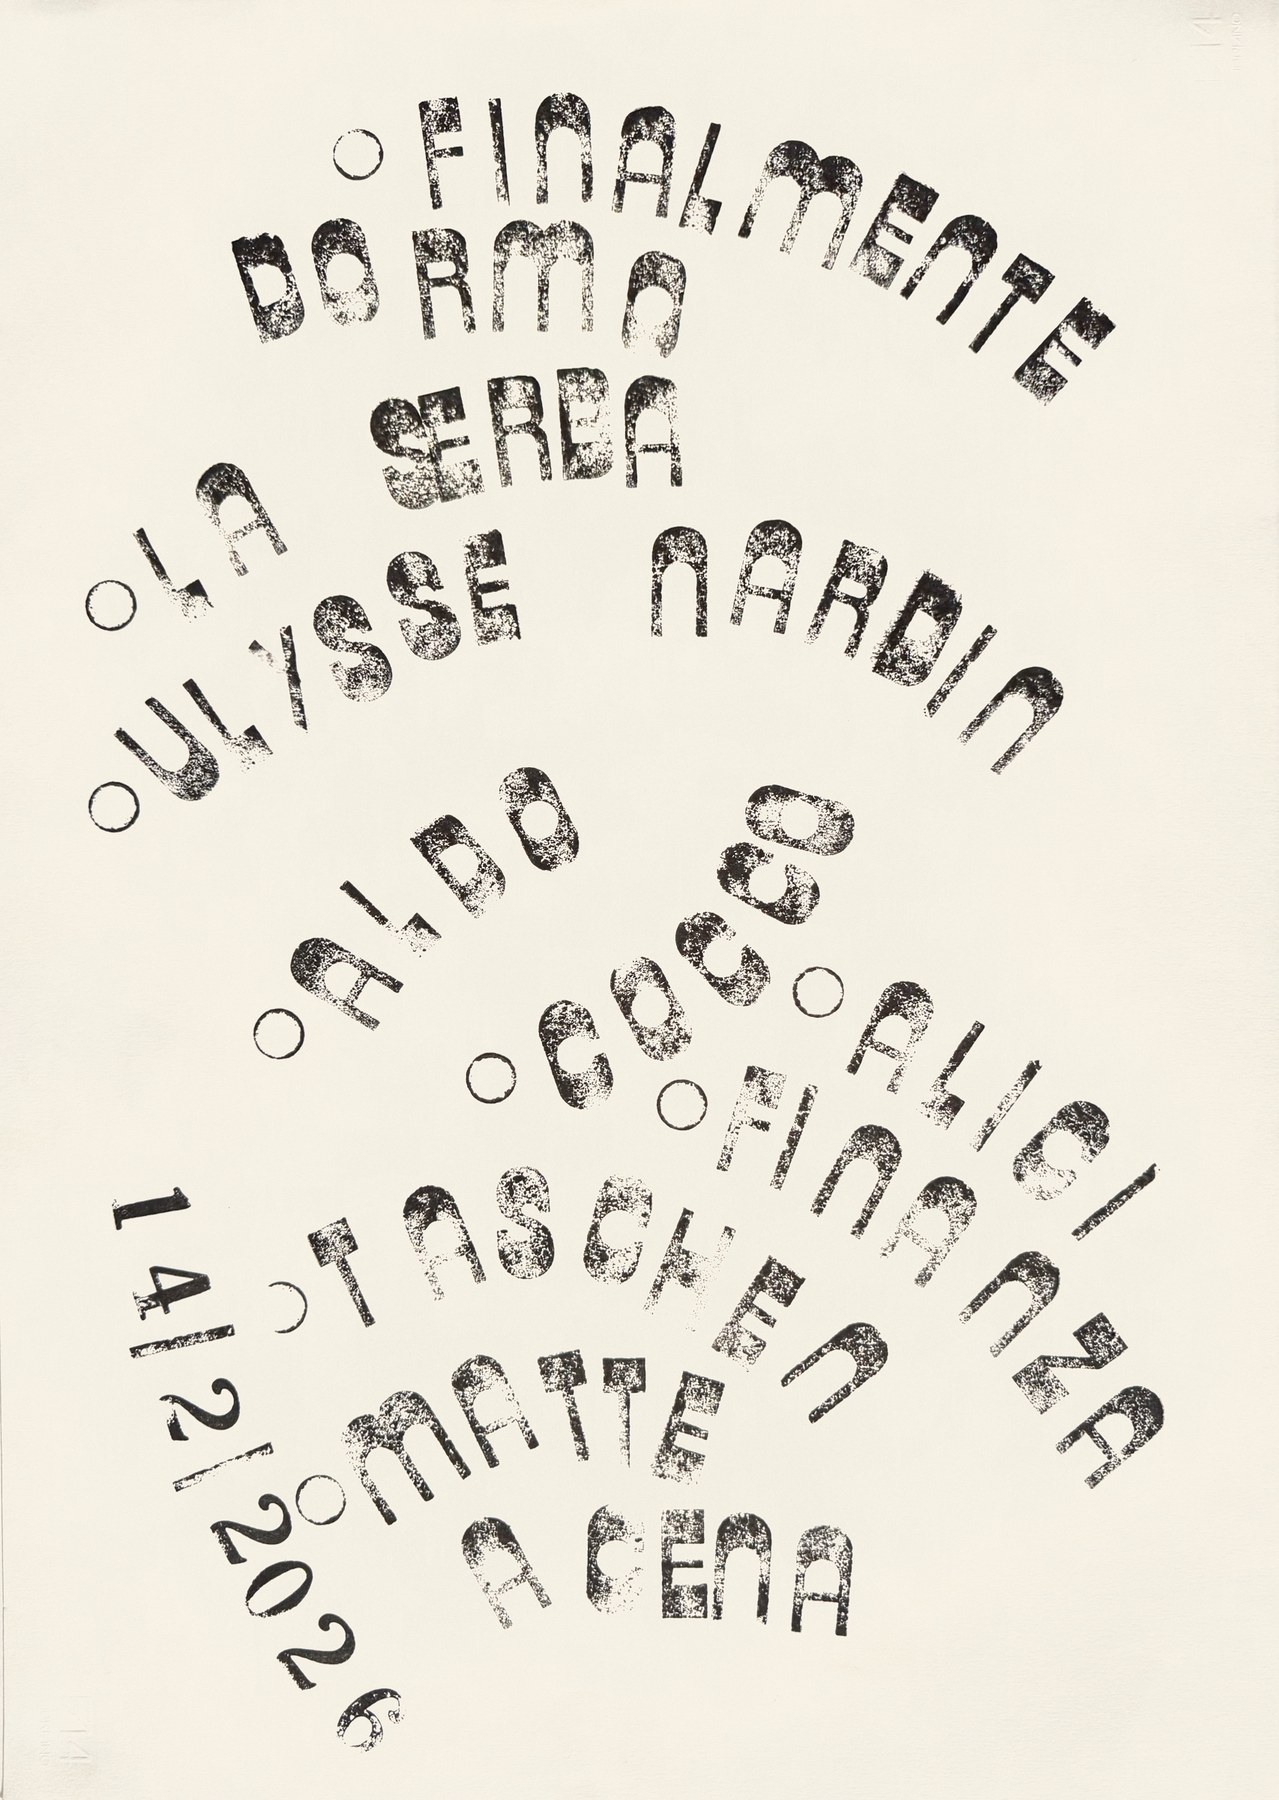 FINALMENTE
DORMO
LA SERBA
ULYSSE NARDIN
ALDO
COCCO
ALICI
FINANZA
TASCHEN
MATTE
A CENA
14|2|2026